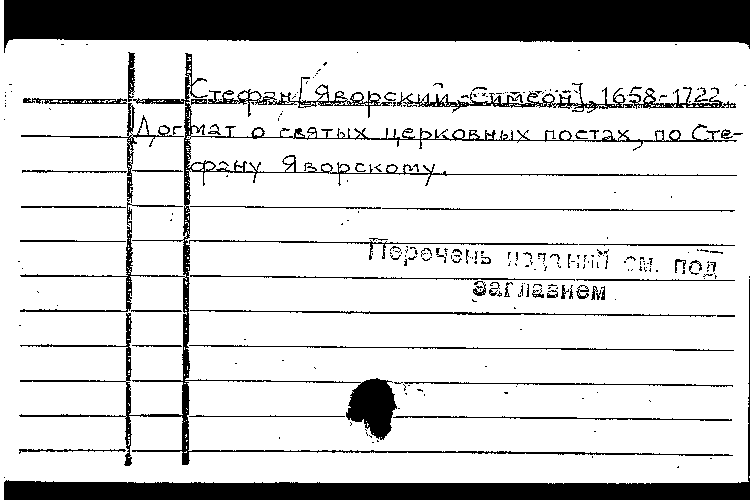 Стефан [Яворский, Симеон], 1658-1722
Догмат о святых церковных постах, по Сте-
фану Яворскому.
Перечень изданий см. под
заглавием